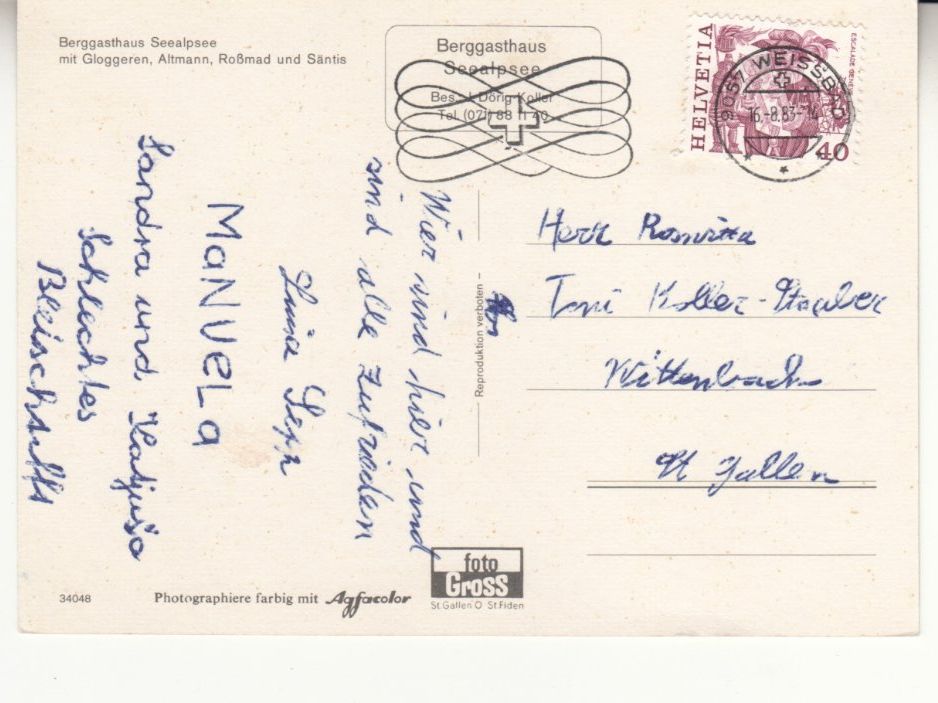 Berggasthaus Seealpsee
mit Gloggeren, Altmann, Roßmad und Säntis
Berggasthaus
Seealpsee
Bes. J. Dörig-Koller
Tel. (071) 88 11 40
HELVETIA
ESCALADE GENÈVE
40
9057 WEISSBAD
16.-8.83-14
Wier sind hier und
sind alle zufrieden
Luisa Sepp
MaNUeLa
Sandra und Katjuša
Schlechtes
Bleischstift
Reproduktion verboten
Herr Roswitta
Toni Koller-Staaber
Wittenbach
St Gallen
34048
Photographiere farbig mit Agfacolor
foto
Gross
St. Gallen O St. Fiden